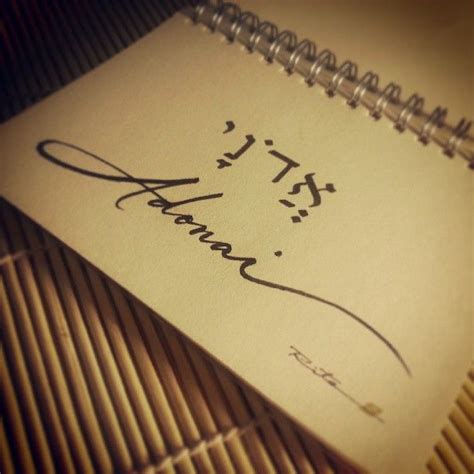 אֲדֹנָי
Adonai
Rita